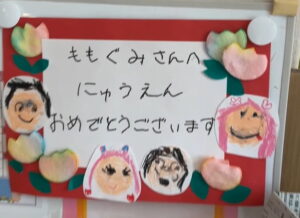 ももぐみさんへ
にゅうえん
おめでとうございます